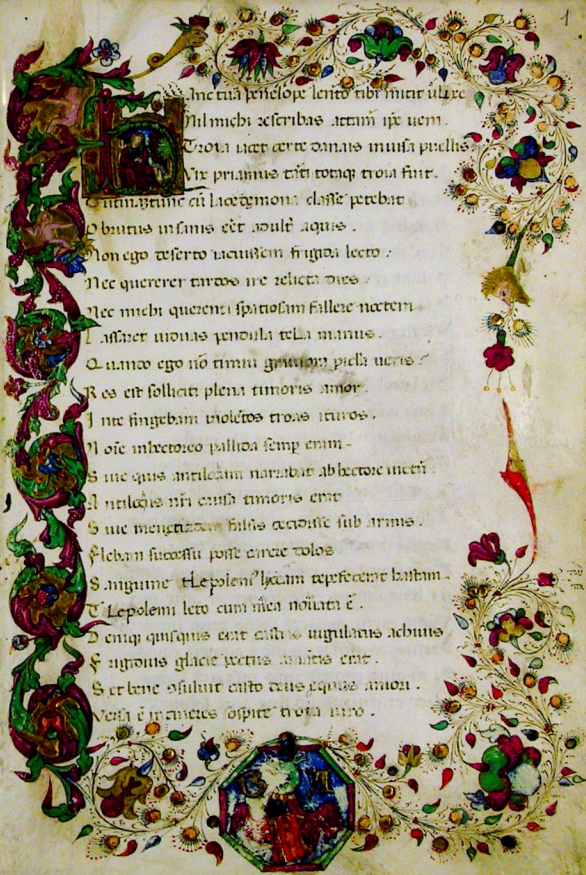 1
Hanc tua penelope lento tibi mittit ulixe
Nil michi rescribas attam̄ ip̄e ueni.
Troia iacet certe danais inuisa puellis
Vix priamus tāti totaq; troia fuit.
O utinam tunc cū lacedemona classe petebat
Obrutus insanis eēt adult̄ aquis.
Non ego deserto iacuissem frigida lecto.
Nec quererer tardos ire relicta dies.
Nec michi querenti spatiosam fallere noctem
Lassaret uiduas pendula tela manus.
Quando ego nō timui grauiora picla ueris.
Res est solliciti plena timoris amor
In te fingebam uiolētos troas ituros.
Noīe in hectoreo pallida semp̄ eram.
Siue quis antilocum narrabat ab hectore uictū
Antilocus nr̄i causa timoris erat
Siue menetiadem falsis cecidisse sub armis.
Flebam successu posse carere dolos
Sanguine tlepolem⁹ lyciam tepefecerat hastam.
Tlepolemi leto cura mea nouata ē.
Deniq; quisquis erat castris iugulatus achiuis
Frigidius glacie pectus amantis erat.
Set bene ɔsuluit casto deus equus amori.
Versa ē in cineres sospite troia uiro.